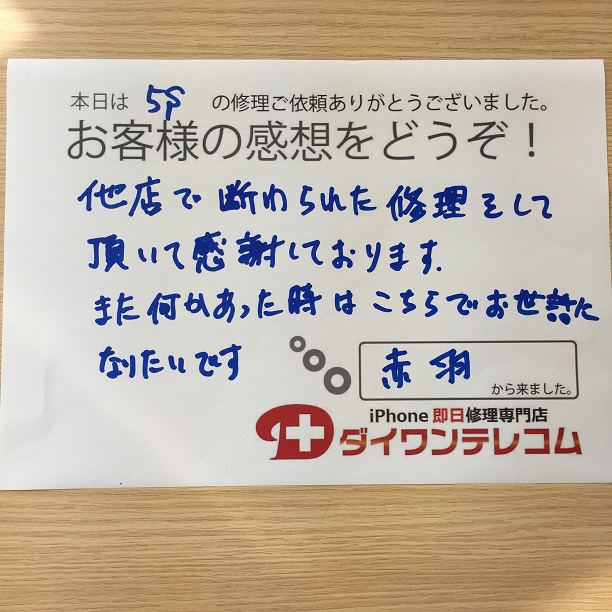 本日は 5S の修理ご依頼ありがとうございました。
お客様の感想をどうぞ！
他店で断わられた修理をして
頂いて感謝しております.
また何かあった時はこちらでお世話に
なりたいです
赤羽
から来ました。
iPhone 即日修理専門店
ダイワンテレコム